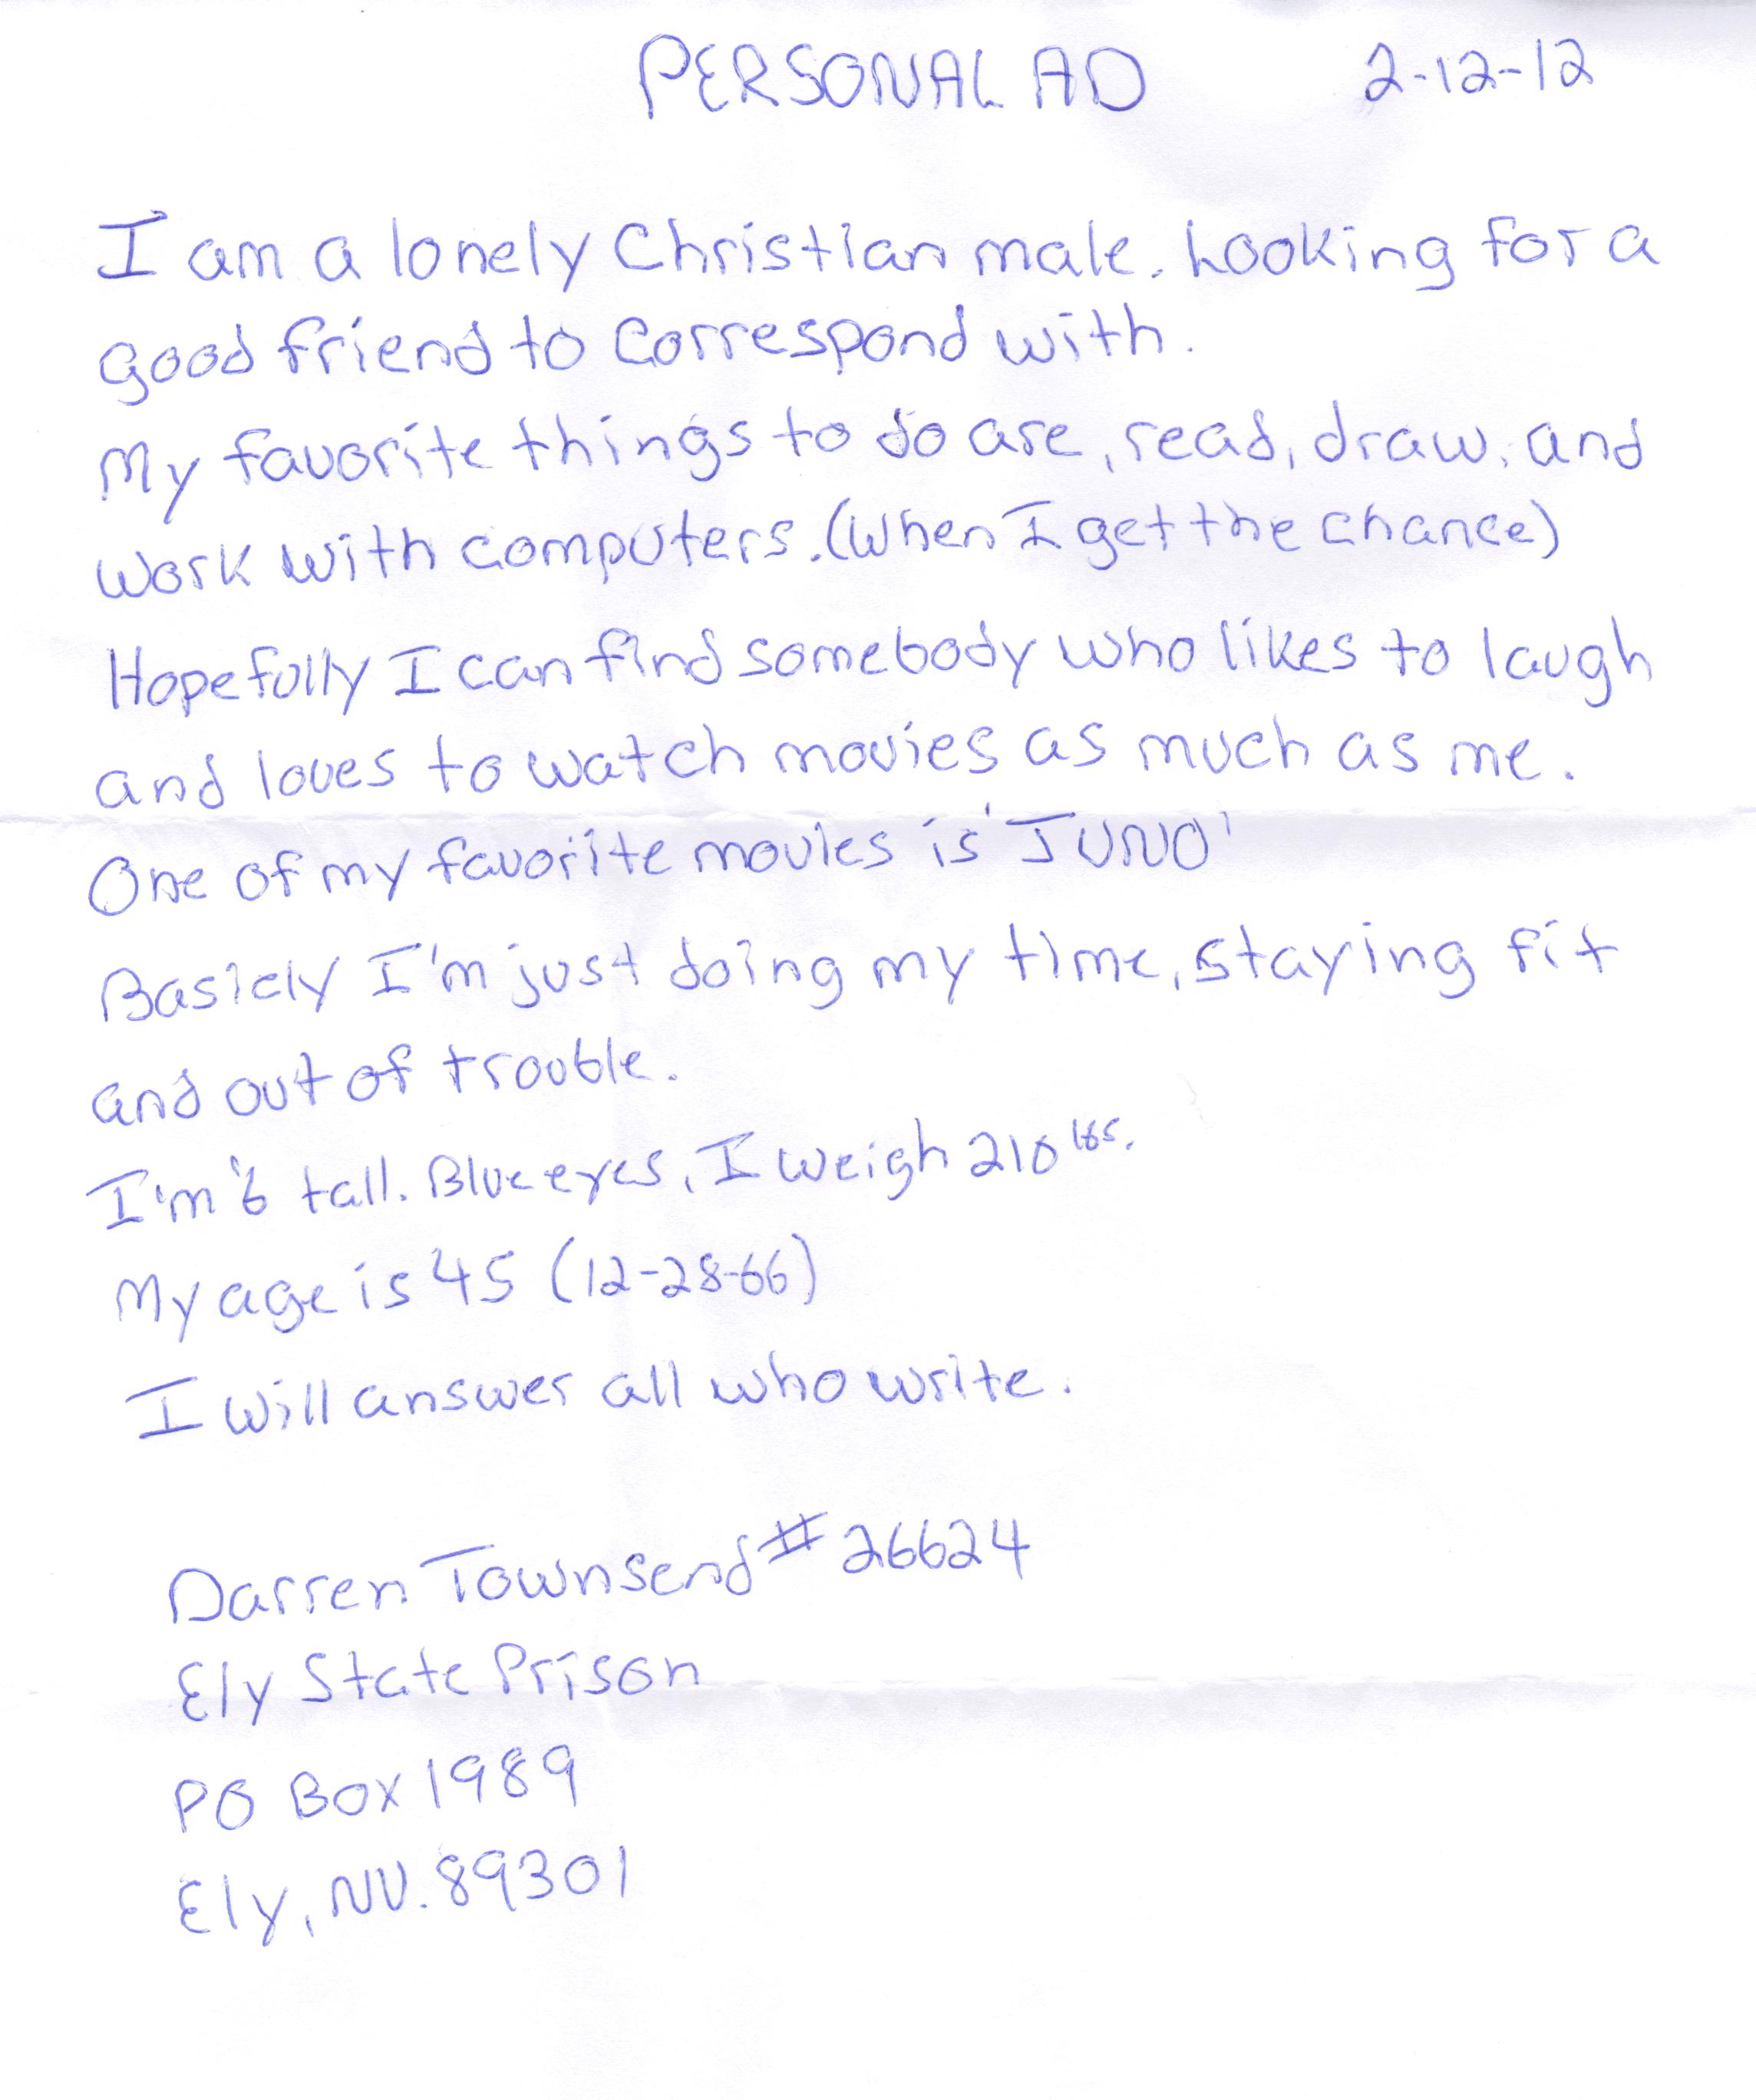 PERSONAL AD 2-12-12
I am a lonely Christian male. Looking for a
good friend to correspond with.
My favorite things to do are, read, draw, and
work with computers. (When I get the chance)
Hopefully I can find somebody who likes to laugh
and loves to watch movies as much as me.
One of my favorite movies is 'JUNO'
Basicly I'm just doing my time, staying fit
and out of trouble.
I'm 6' tall. Blue eyes, I weigh 210 lbs.
My age is 45 (12-28-66)
I will answer all who write.
Darren Townsend # 26624
Ely State Prison
PO Box 1989
Ely, NV. 89301